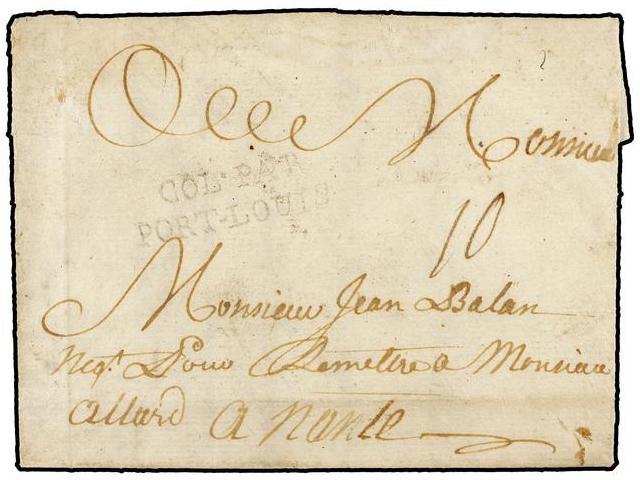 A Monsieur
COL·PAR
PORT-LOUIS
10
Monsieur Jean Balan
Negt. Pour Remettre a Monsieur
allard a nante